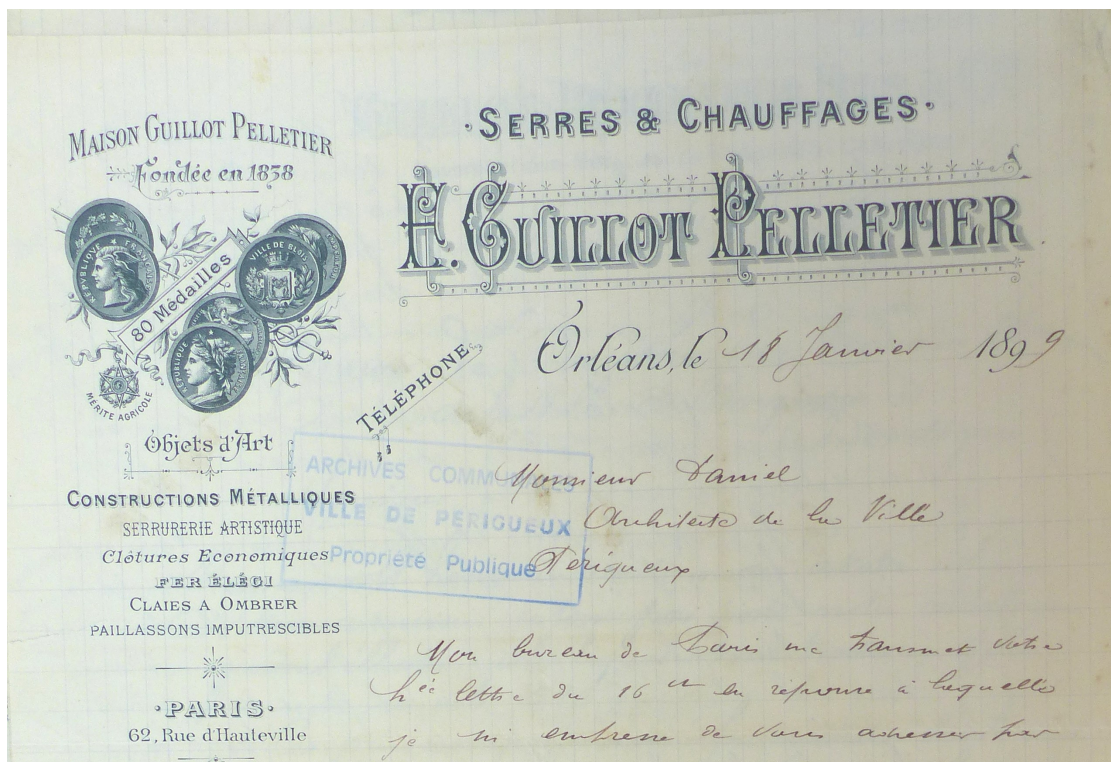 MAISON GUILLOT PELLETIER
Fondée en 1838
RÉPUBLIQUE FRANÇAISE
80 Médailles
VILLE DE BLOIS
RÉPUBLIQUE FRANÇAISE
MÉRITE AGRICOLE
Objets d'Art
CONSTRUCTIONS MÉTALLIQUES
SERRURERIE ARTISTIQUE
Clôtures Economiques
FER ÉLÉGI
CLAIES A OMBRER
PAILLASSONS IMPUTRESCIBLES
·PARIS·
62, Rue d'Hauteville
·SERRES & CHAUFFAGES·
E. GUILLOT PELLETIER
TÉLÉPHONE
Orléans, le 18 Janvier 1899
ARCHIVES COMMUNALES
VILLE DE PÉRIGUEUX
Propriété Publique
Monsieur Daniel
Architecte de la Ville
Périgueux
Mon bureau de Paris me transmet votre
hée lettre du 16 ct en réponse à laquelle
je m'empresse de vous adresser par